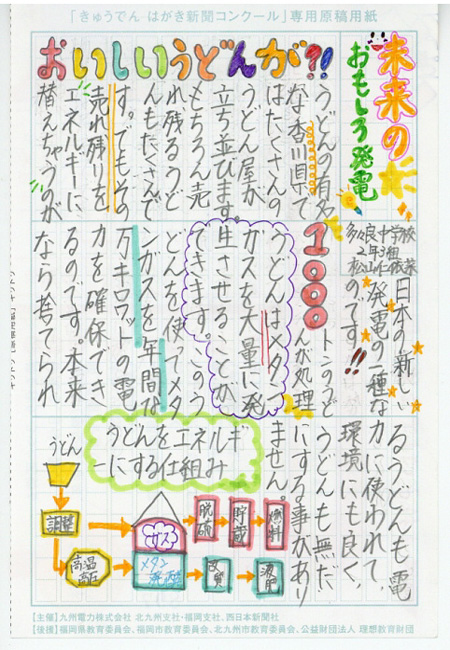 「きゅうでん はがき新聞コンクール」専用原稿用紙
未来の
おもしろ発電
おいしいうどんが?!
うどんの有名
な香川県で
はたくさんの
うどん屋が
立ち並びます。
もちろん売
れ残るうど
んもたくさんで
す。でも、その
売れ残りを
エネルギーに
替えちゃうのが
多々良中学校
2年3組
日本の新しい
発電の一種な
のです!!
1000トンのうど
んが処理
うどんはメタン
ガスを大量に発
生させることが
できます。このう
どんを使ってメタ
ンガスを年間な
万キロワットの電
力を確保でき
るのです。本来
なら捨てられ
るうどんも電
力に使われて、
環境にも良く、
うどんも無だ
にする事があり
ません。
うどんをエネルギ
ーにする仕組み
うどん
調整
高温
ガス
メタン
発酵
脱硫
貯蔵
燃料
【主催】九州電力株式会社 北九州支社・福岡支社、西日本新聞社
【後援】福岡県教育委員会、福岡市教育委員会、北九州市教育委員会、公益財団法人 理想教育財団